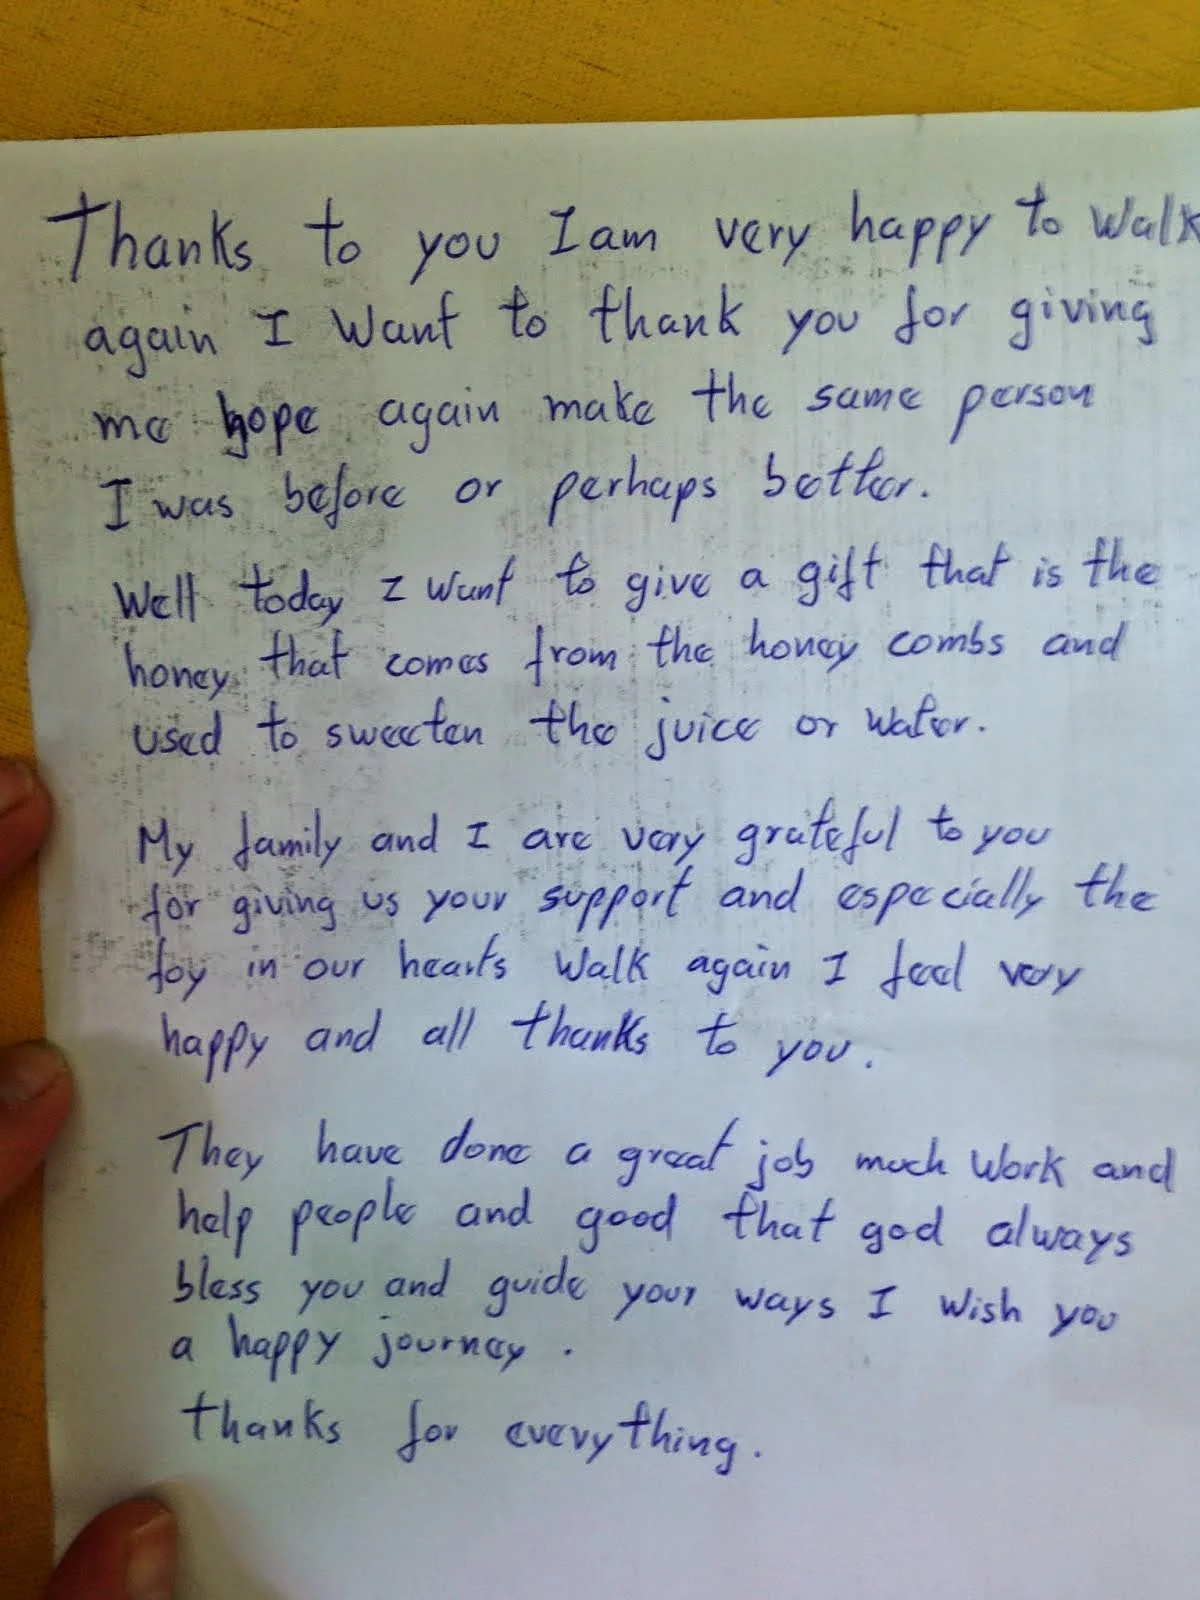 Thanks to you I am very happy to Walk
again I Want to thank you for giving
me hope again make the same person
I was before or perhaps better.
Well today I Want to give a gift that is the
honey that comes from the honey combs and
used to sweeten the juice or Water.
My family and I are very grateful to you
for giving us your support and especially the
foy in our hearts Walk again I feel very
happy and all thanks to you.
They have done a great job much Work and
help people and good that god always
bless you and guide your ways I Wish you
a happy journey.
thanks for everything.